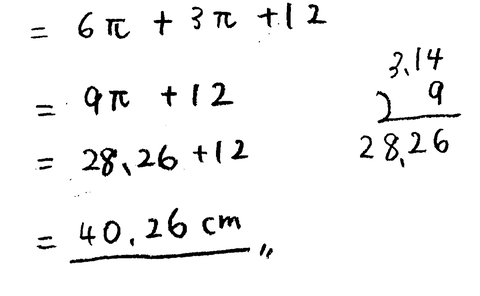 = 6π + 3π + 12
= 9π + 12
= 28.26 + 12
= 40.26 cm
3.14
9
28.26